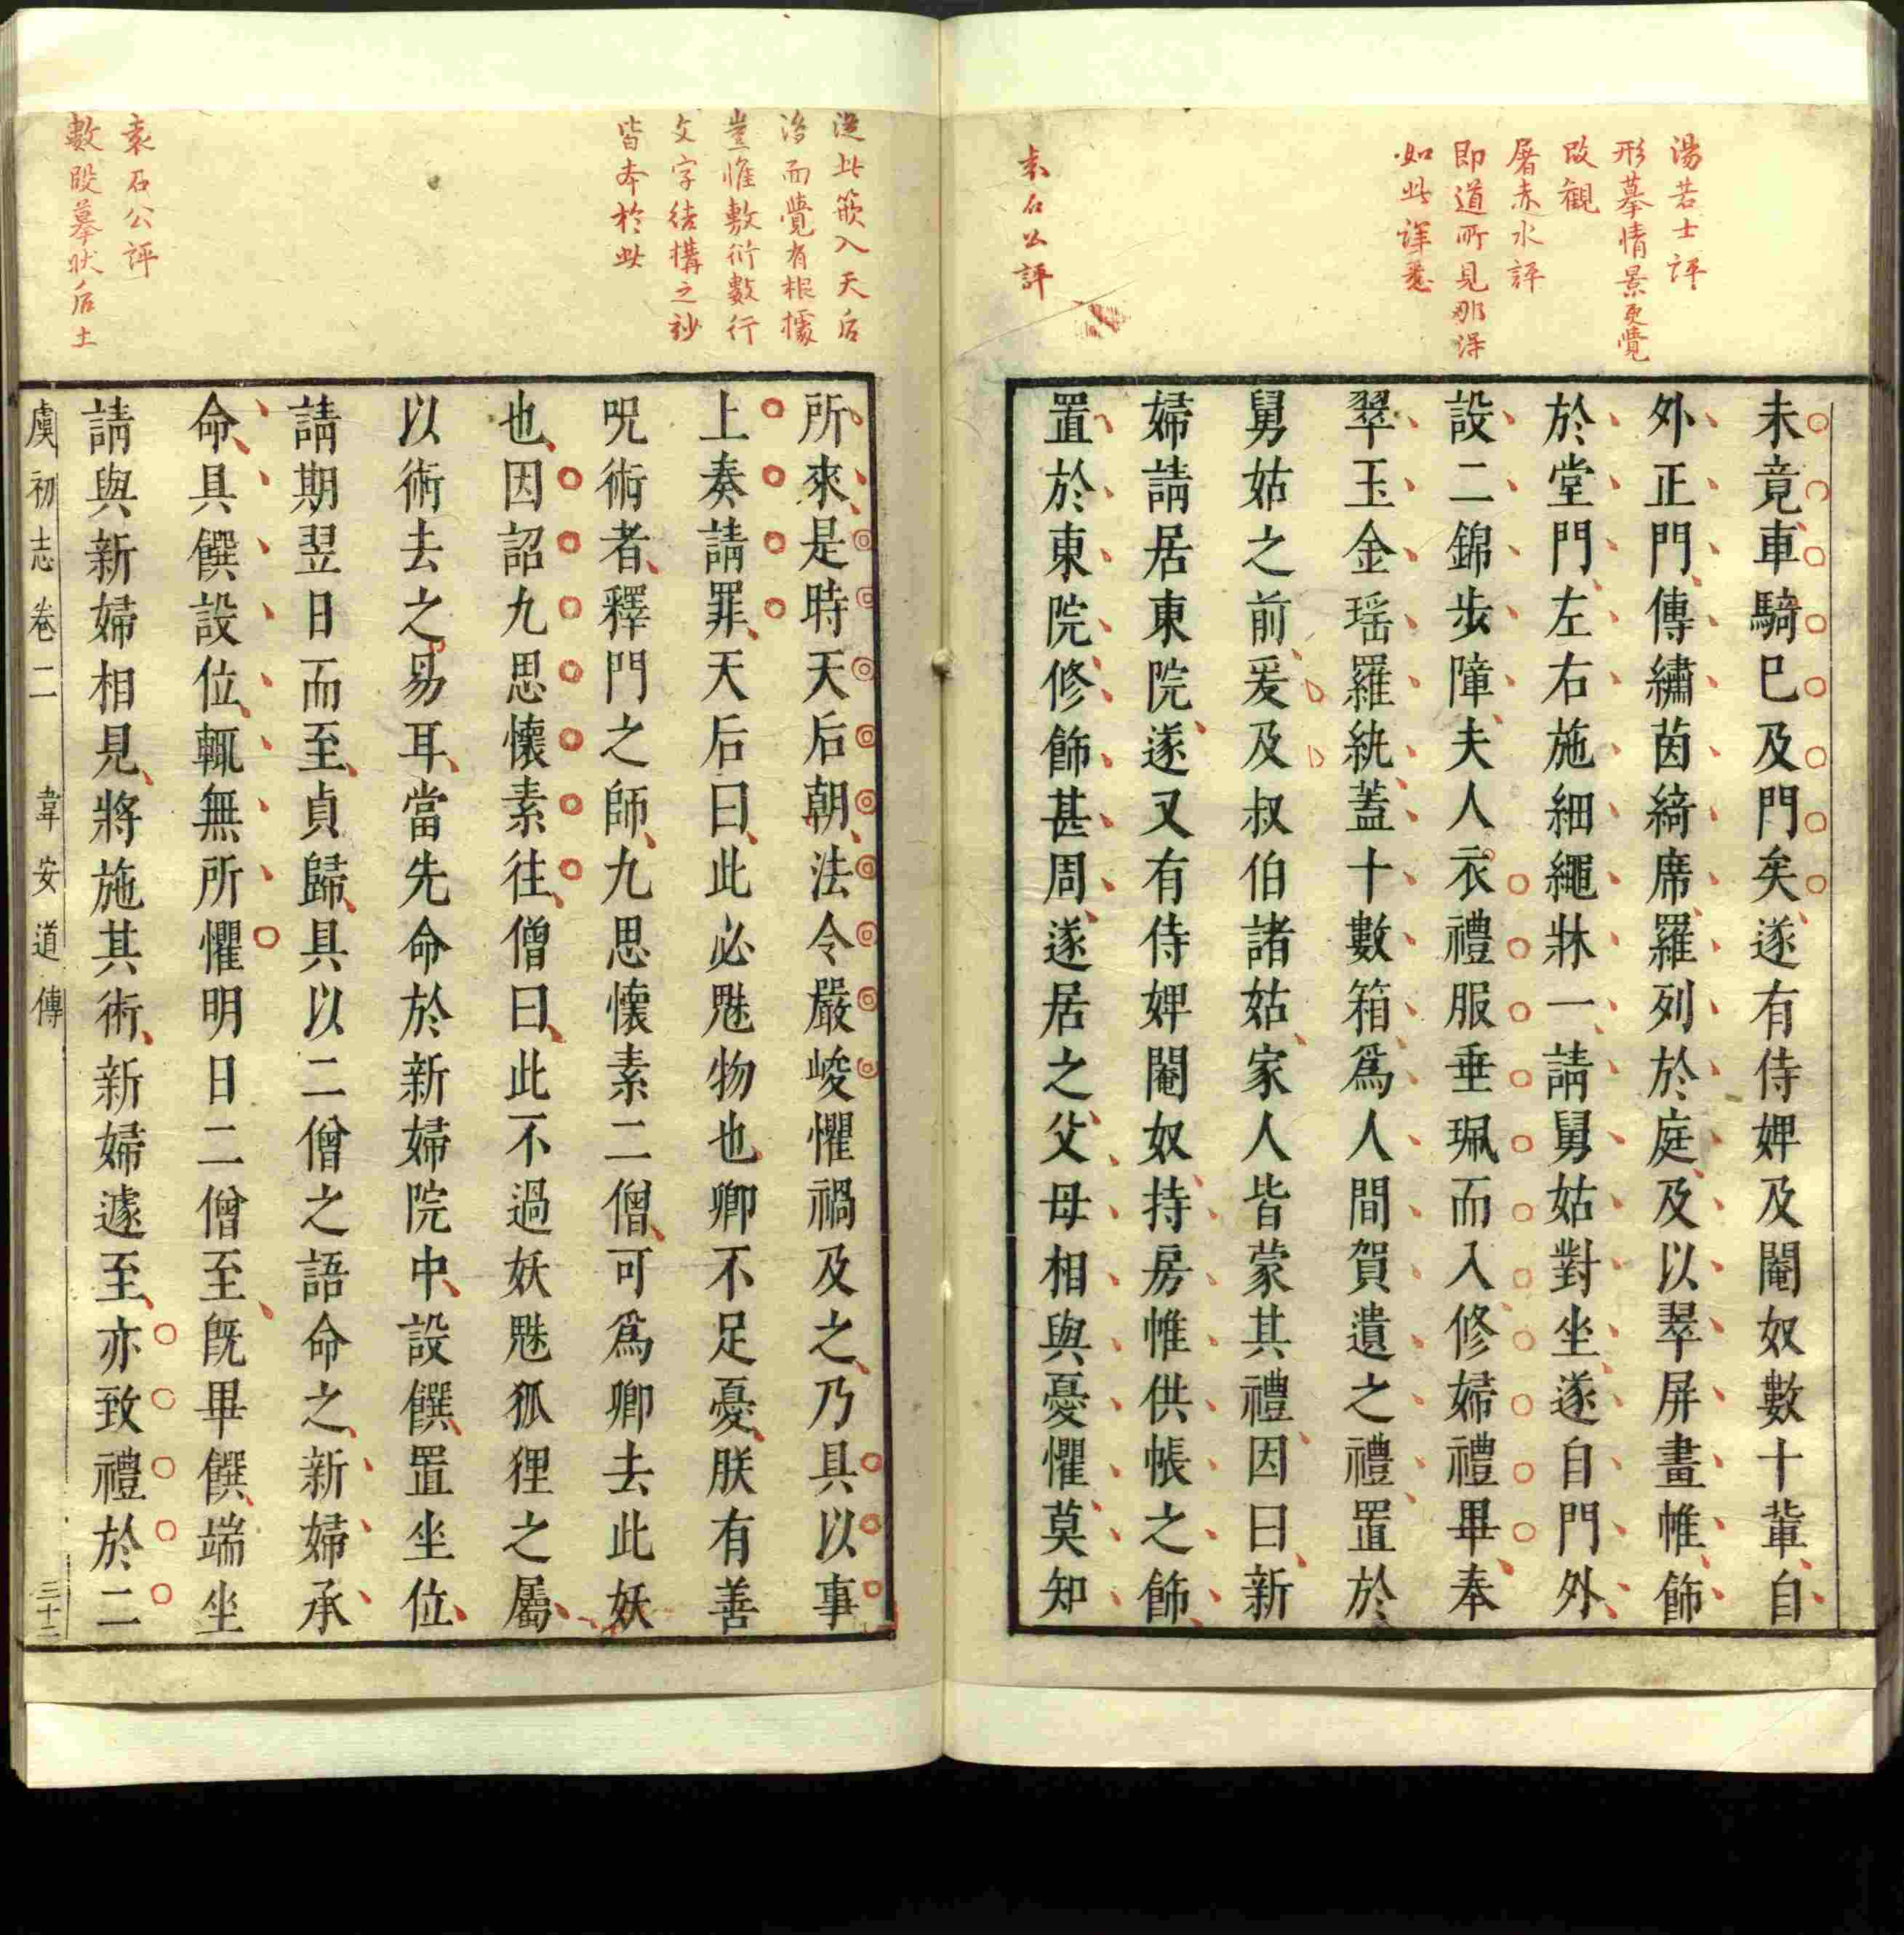 湯若士評
形摹情景更覺
改觀
屠赤水評
即道所見那得
如此詳悉
袁石公評
未竟車騎已及門矣遂有侍婢及閽奴數十輩自
外正門傳繡茵綺席羅列於庭及以翠屏畫帷飾
於堂門左右施細繩牀一請舅姑對坐遂自門外
設二錦步障夫人衣禮服垂珮而入修婦禮畢奉
翠玉金瑶羅紈蓋十數箱爲人間賀遺之禮置於
舅姑之前爰及叔伯諸姑家人皆蒙其禮因曰新
婦請居東院遂又有侍婢閽奴持房帷供帳之飾
置於東院修飾甚周遂居之父母相與憂懼莫知
從此篏入天后
洛而覺有根據
豈惟敷衍數行
文字結構之玅
皆本於此
袁石公評
數段摹狀后土
所來是時天后朝法令嚴峻懼禍及之乃具以事
上奏請罪天后曰此必魅物也卿不足憂朕有善
呪術者釋門之師九思懷素二僧可爲卿去此妖
也因詔九思懷素往僧曰此不過妖魅狐狸之屬
以術去之易耳當先命於新婦院中設饌置坐位
請期翌日而至貞歸具以二僧之語命之新婦承
命具饌設位輒無所懼明日二僧至旣畢饌端坐
請與新婦相見將施其術新婦遽至亦致禮於二
虞初志卷二 韋安道傳 三十二